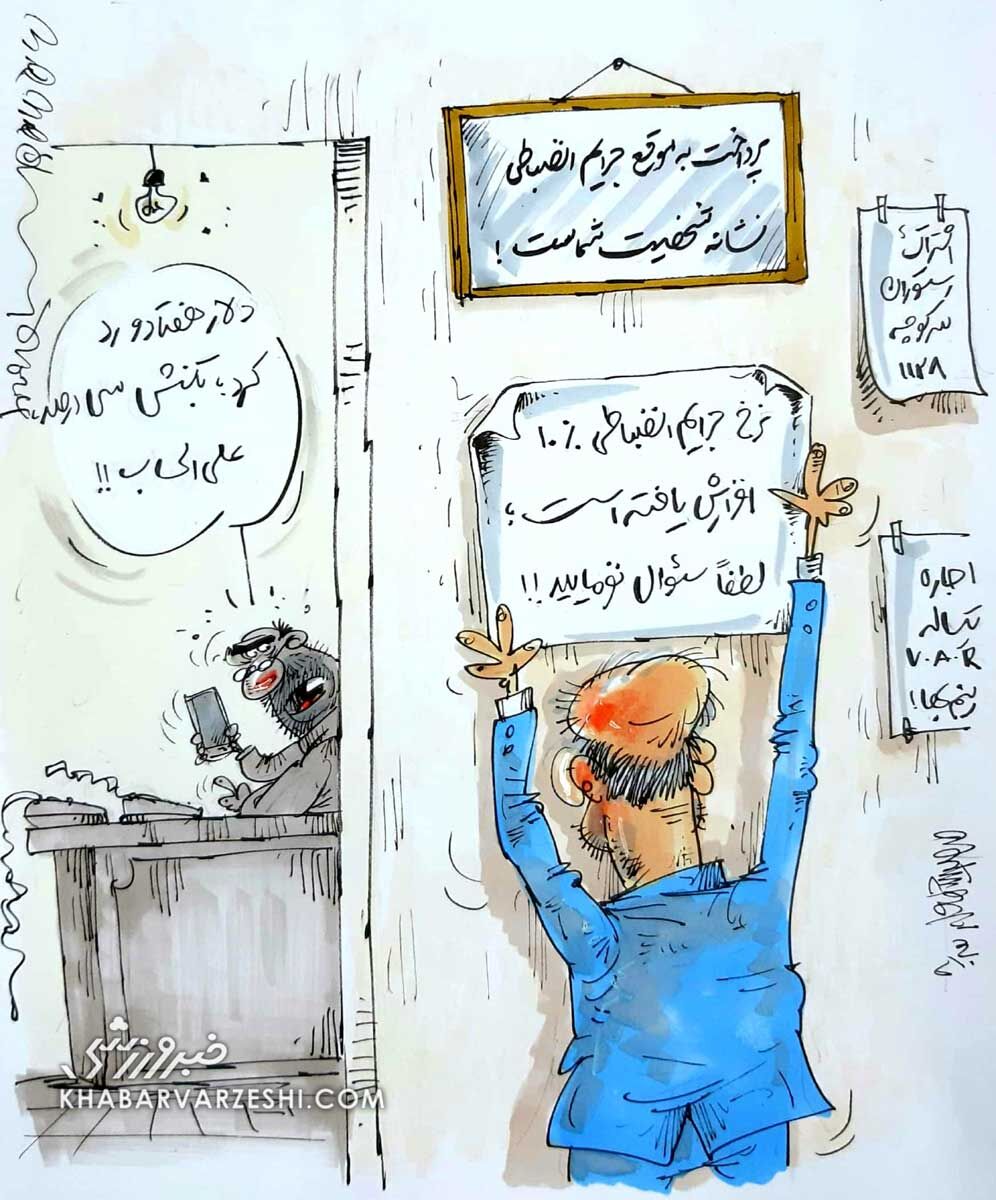 پرداخت به موقع جرایم انضباطی
نشانه شخصیت شماست !
نرخ جرایم انضباطی ۱۰٪
افزایش یافته است ؛
لطفاً سئوال نفرمایید !!
دلار هفتادو رد
کرد ، بکنش سی درصد،
علی الحساب !!
اشتراک
رستوران
سرکوچه
۱۱۲۸
اجاره
یکساله
V.A.R
خبرورزشی
KHABARVARZESHI.COM